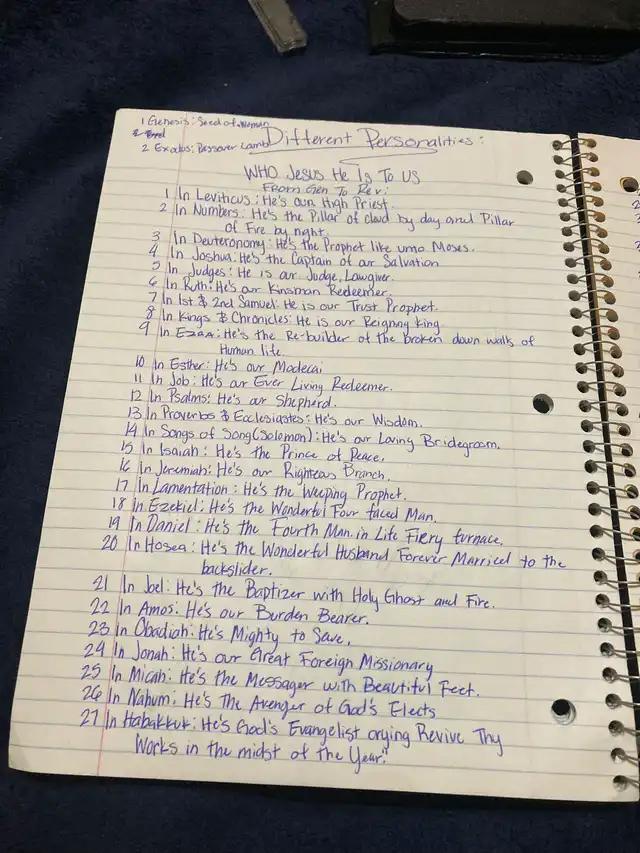 1 Genesis: Seed of Woman
2 Exodus: Passover Lamb
Different Personalities:
WHO Jesus He Is To US
From Gen To Rev:
1 In Leviticus: He's our High Priest.
2 In Numbers: He's the Pillar of cloud by day and Pillar
of Fire by night.
3 In Deuteronomy: He's the Prophet like unto Moses.
4 In Joshua: He's the Captain of our Salvation
5 In Judges: He is our Judge, Lawgiver.
6 In Ruth: He's our Kinsman Redeemer.
7 In 1st & 2nd Samuel: He is our Trust Prophet.
8 In Kings & Chronicles: He is our Reigning King
9 In Ezra: He's the Re-builder of the broken down walls of
Human life.
10 In Esther: He's our Modecai
11 In Job: He's our Ever Living Redeemer.
12 In Psalms: He's our Shepherd.
13 In Proverbs & Ecclesiastes: He's our Wisdom.
14 In Songs of Song (Solomon): He's our Loving Bridegroom.
15 In Isaiah: He's the Prince of Peace.
16 In Jeremiah: He's our Righteous Branch.
17 In Lamentation: He's the Weeping Prophet.
18 In Ezekiel: He's the Wonderful Four faced Man.
19 In Daniel: He's the Fourth Man in Life Fiery furnace.
20 In Hosea: He's the Wonderful Husband Forever Married to the
backslider.
21 In Joel: He's the Baptizer with Holy Ghost and Fire.
22 In Amos: He's our Burden Bearer.
23 In Obadiah: He's Mighty to Save.
24 In Jonah: He's our Great Foreign Missionary
25 In Micah: He's the Messager with Beautiful Feet.
26 In Nahum: He's The Avenger of God's Elects
27 In Habakkuk: He's God's Evangelist crying Revive Thy
Works in the midst of the Year."